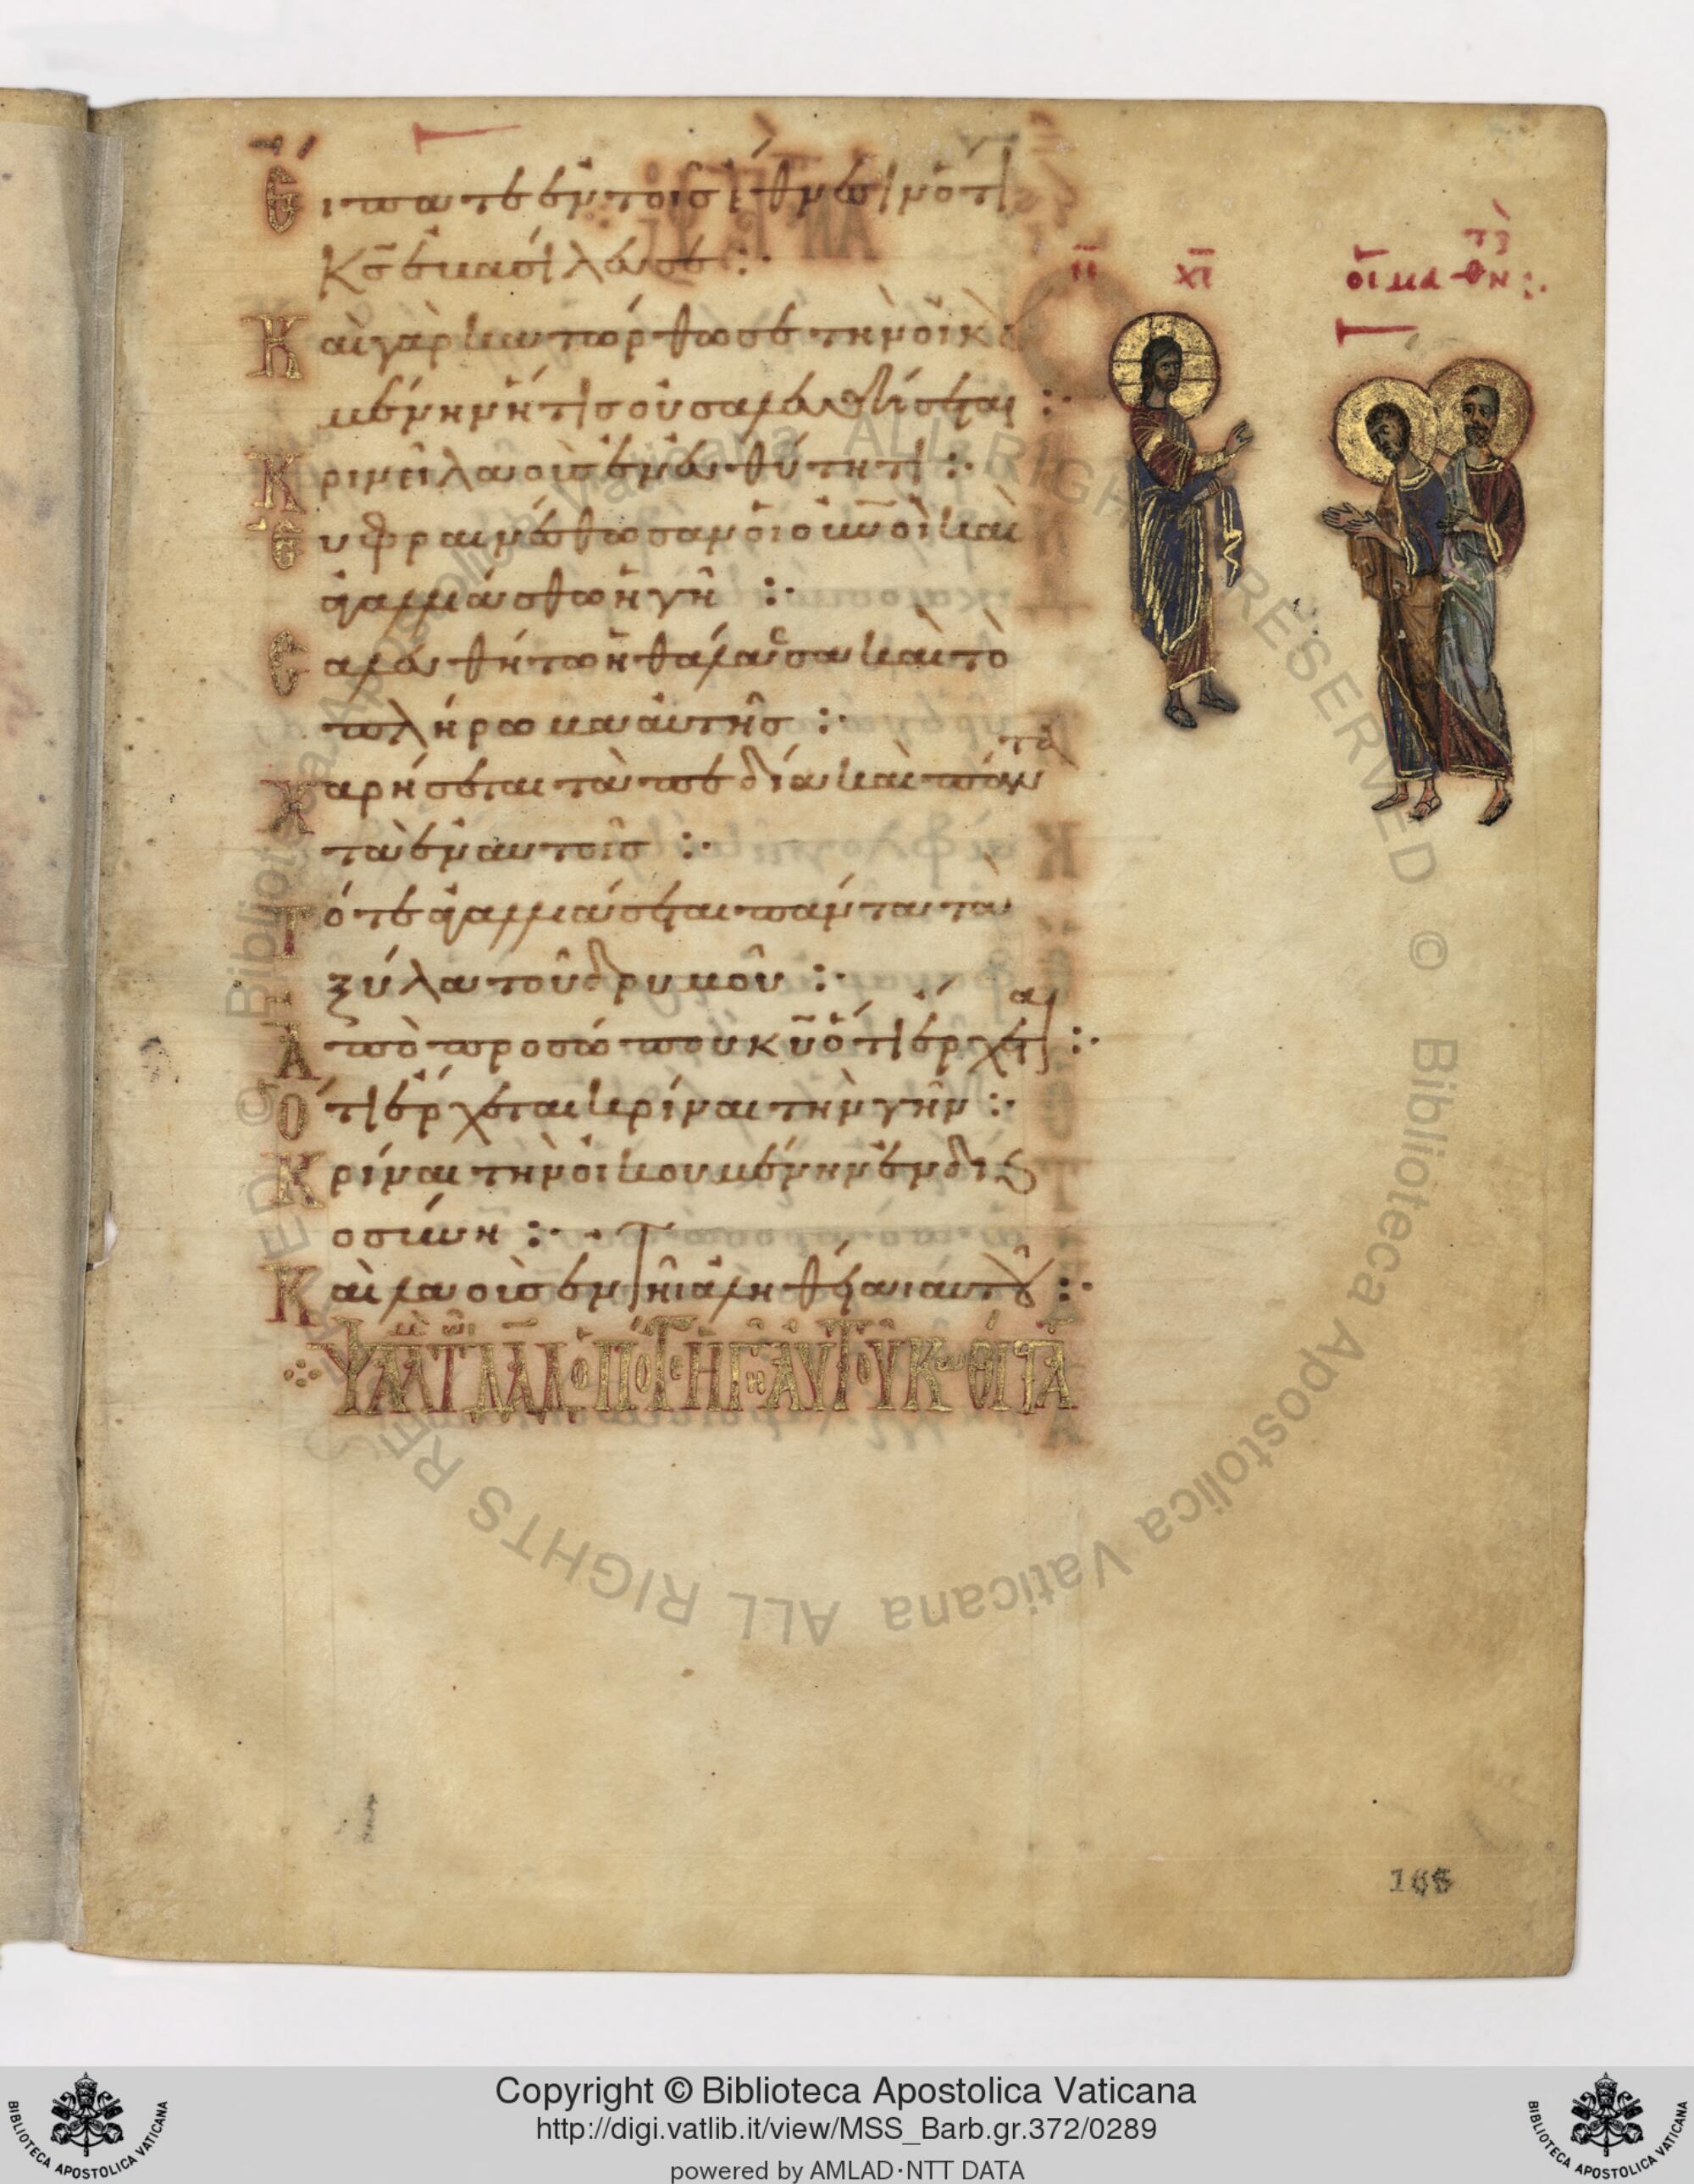 Εἴπατε ἐν τοῖς ἔθνεσιν ὅτι
κ̅ς̅ ἐβασίλευσε :·
Καὶ γὰρ κατώρθωσε τὴν οἰκου
μένην ἥτις οὐ σαλευθήσεται :·
Κρινεῖ λαοὺς ἐν εὐθύτητι :·
Εὐφραινέσθωσαν οἱ οὐ̅νοὶ καὶ
ἀγαλλιάσθω ἡ γῆ :·
Σαλευθήτω ἡ θάλασσα καὶ τὸ
πλήρωμα αὐτῆς :·
Χαρήσεται τὰ πεδία καὶ πάντα
τὰ ἐν αὐτοῖς :·
Τότε ἀγαλλιάσεται πάντα τὰ
ξύλα τοῦ δρυμοῦ :·
Ἀπὸ προσώπου κ̅υ̅ ὅτι ἔρχεται :·
Ὅτι ἔρχεται κρῖναι τὴν γῆν :·
Κρῖναι τὴν οἰκουμένην ἐν δικαι
οσύνη :·
Καὶ λαοὺς ἐν τῆ ἀληθεία αὐτοῦ :·
ΨΑΛΜ ΤΩ ΔΑΔ ὉΠΟΤΕ Ἡ ΓΗ ΑΥΤΟΥ Κ ΘΙΣΤΑ
ι̅ς̅ χ̅ς̅
οἱ μαθηταί :·
168
Copyright © Biblioteca Apostolica Vaticana
http://digi.vatlib.it/view/MSS_Barb.gr.372/0289
powered by AMLAD·NTT DATA
BIBLIOTECA APOSTOLICA VATICANA
BIBLIOTECA APOSTOLICA VATICANA
© Biblioteca Apostolica Vaticana ALL RIGHTS RESERVED © Biblioteca Apostolica Vaticana ALL RIGHTS RESERVED